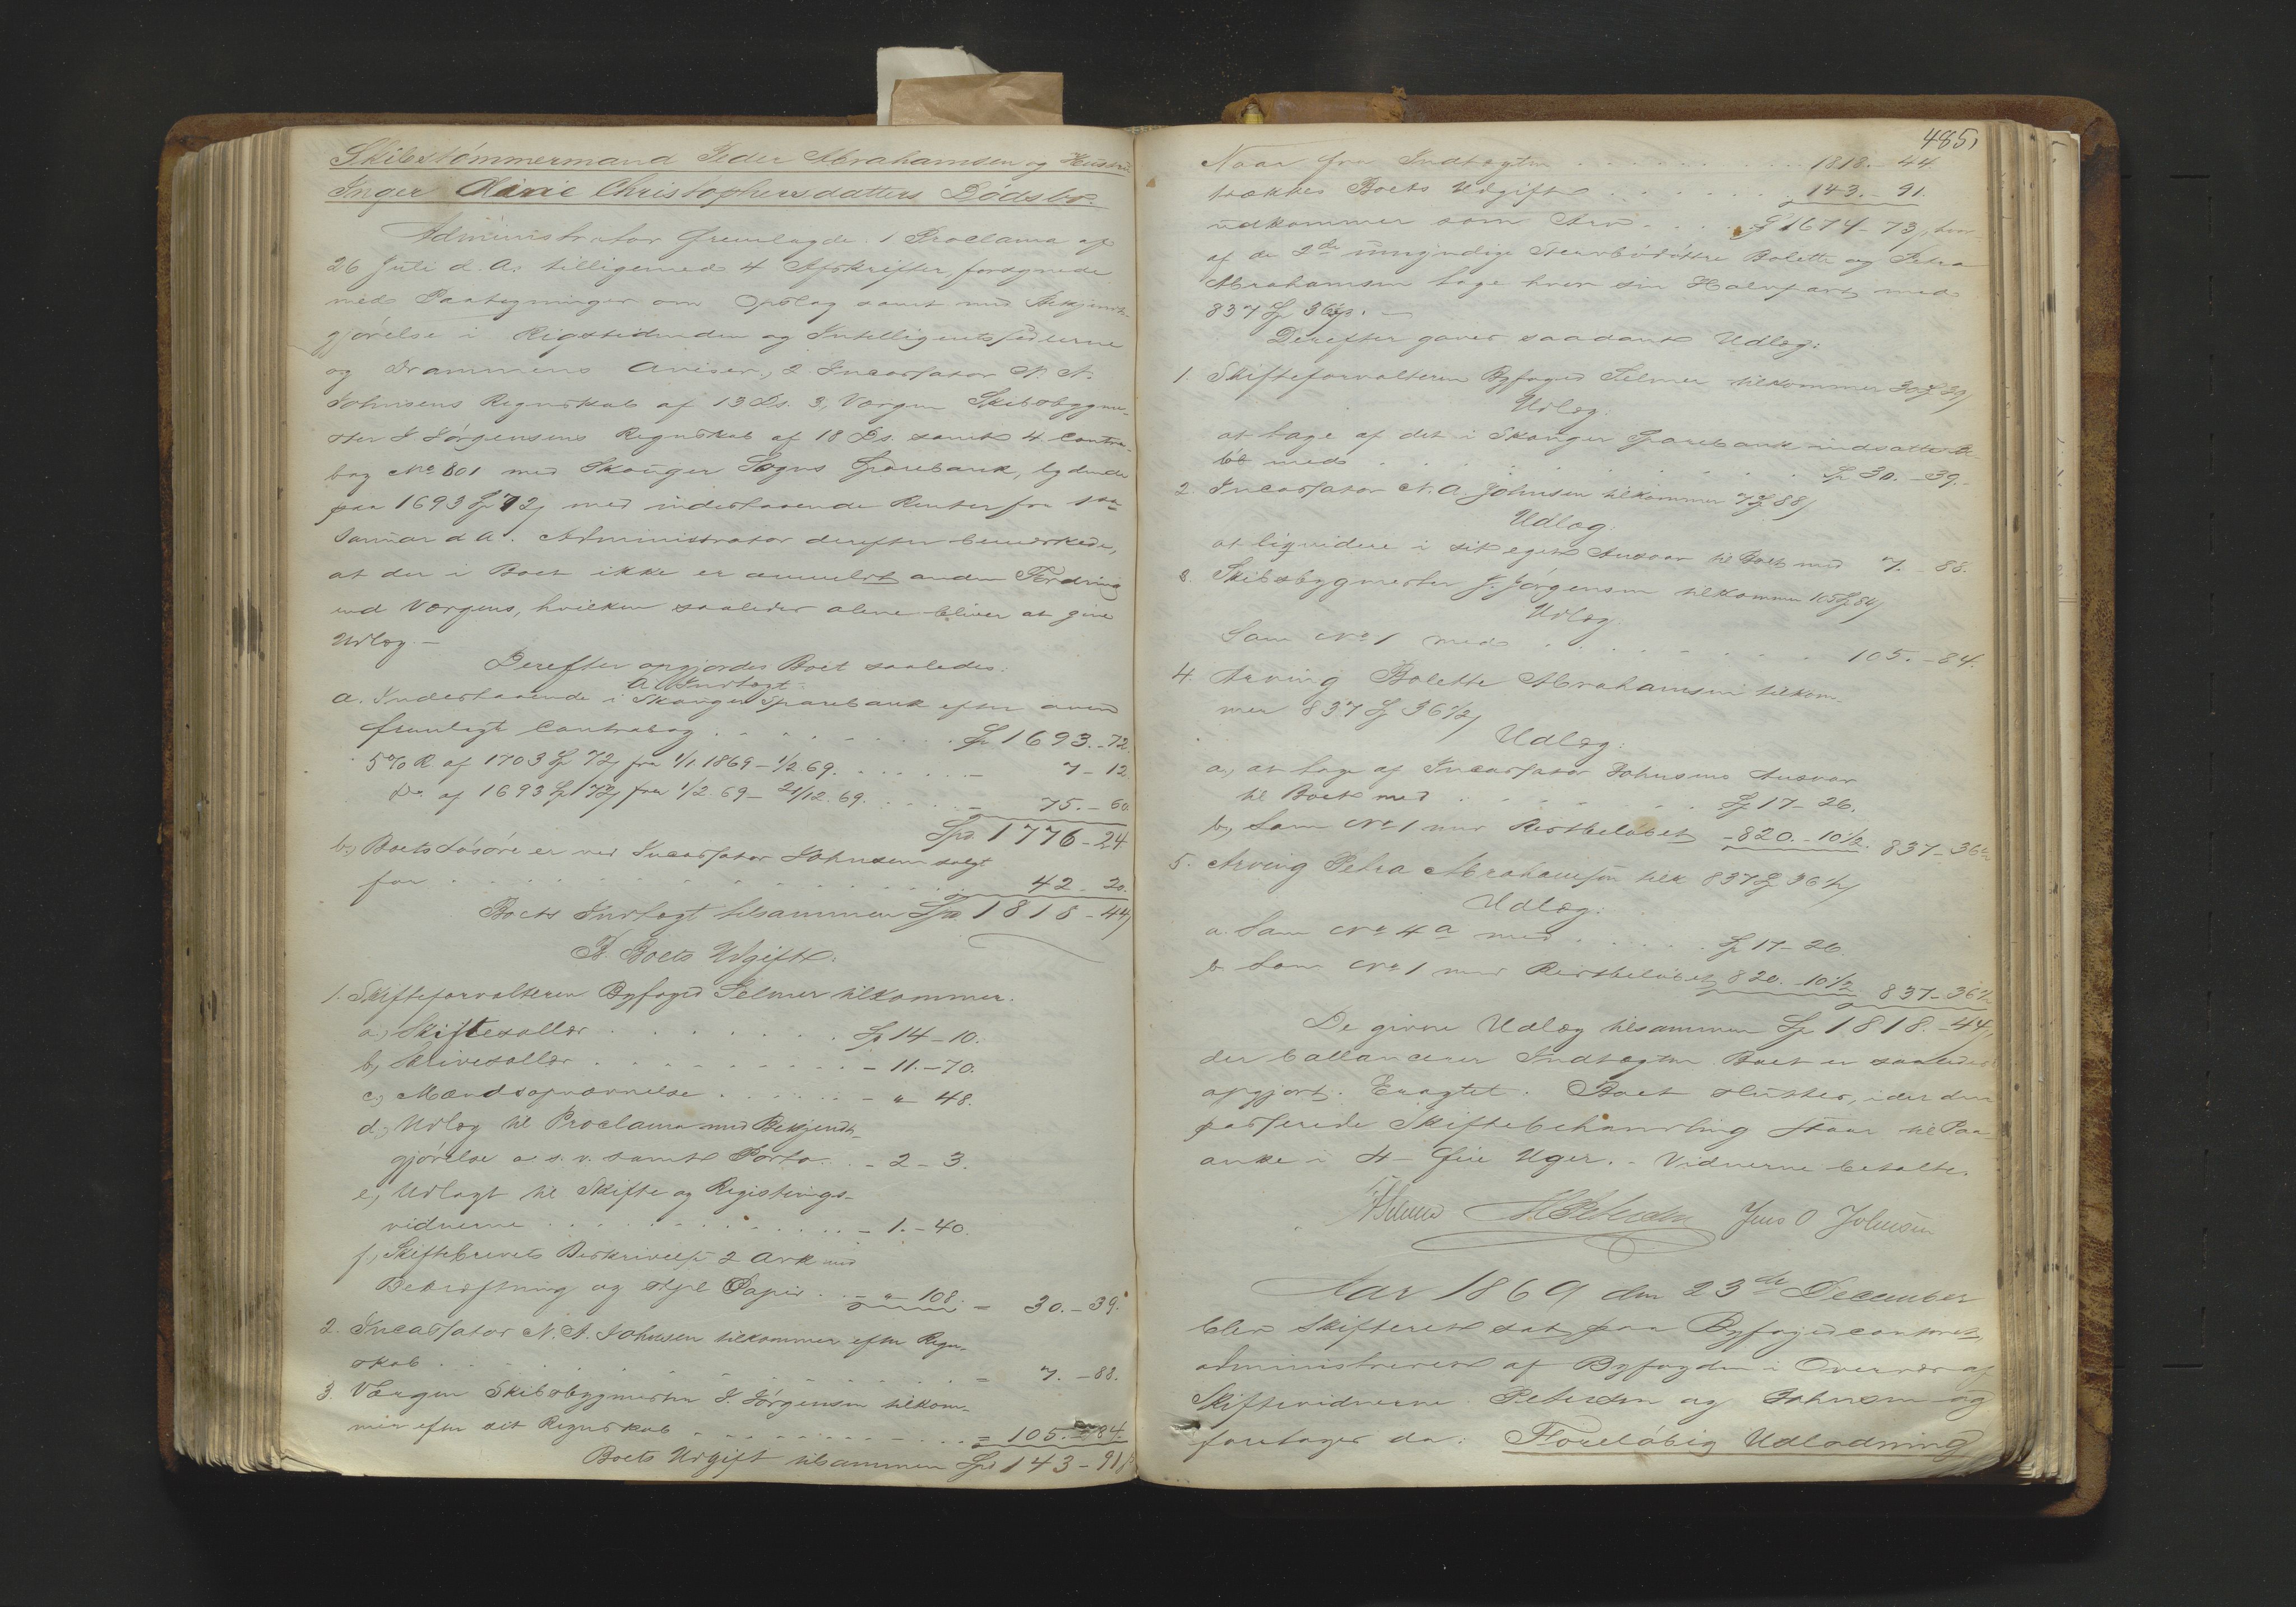 Skibstømmermand Peder Abrahamsen og Hustru
Inger Marie Christophersdatters Dødsbo.
Administrator fremlagde 1 Proclama af
26 Juli d. A. tilligemed 4 Afskrifter, forsynede
med Paategninger om Opslag samt med Bekjendt-
gjørelse i Rigstidenden og Intelligentssedlerne
og Drammens Aviser, 2 Incassator N. A.
Johnsens Regnskab af 13 Ds. 3, Værgen Skibsbygme-
ster J Jørgensens Regnskab af 18 Ds. samt 4 Contra-
bog No 801 med Skouger Sogns Sparebank, lydende
paa 1693 Sp 72 med indestaaende Renter fra 1ste
Januar d A. Administrator derefter bemærkede,
at der i Boet ikke er anmeldt anden Fordring
end Værgens, hvilken saaledes alene bliver at give
Udlæg. –
Derefter opgjordes Boet saaledes:
A. Indtægt.
a. Indestaaende i Skouger Sparebank efter oven
fremlagt Contrabog . . . Sp 1693.-72.
5% R. af 1703 Sp 72 fra 1/1 1869 - 1/2 69. . . . - 7-12
Do af 1693 Sp 72 fra 1/2. 69 - 21/12. 69. . . . - 75.-60.
Spd. 1776-24
b, Boets Løsøre er ved Incassator Johnsen solgt
for . . . 42-20.
Boets Indtægt tilsammen Spd 1818-44
B. Boets Udgift.
1. Skifteforvalteren Byfoged Selmer tilkommer.
a, Skiftesallær . . . Sp 14-10.
b, Skrivesallær . . . - 11.-70.
c, Mændsopnævnelse . . . - " 48.
d, Udlæg til Proclama med Bekjendt-
gjørelse o. s. v. samt Porto . . - 2-3.
e, Udlagt til Skifte og Registrings-
vidnerne . . . - 1.-40.
f, Skiftebrevets Beskrivelse 2 Ark med
Bekræftning og stpl Papir . . - " - 108. = 30.-39.
2. Incassator N. A. Johnsen tilkommer efter Regn-
skab . . . = 7.-88.
3. Værgen Skibsbygmester J. Jørgensen tilkom-
mer efter sit Regnskab . . . = 105.-84.
Boets Udgift tilsammen Spd 143-91
485,
Naar fra Indtægten . . . 1818.-44
trækkes Boets Udgift . . . 143.-91.
udkommer som Arv . . . Sp 1674-73, hvor-
af de 2de umyndige Steerbødøttre Bolette og Petra
Abrahamsen tage hver sin Halvpart, med
837 Sp 36½. –
Derefter gaves saadant Udlæg:
1. Skifteforvalteren Byfoged Selmer tilkommer 30 Sp 39
Udlæg.
at tage af det i Skouger Sparebank indsatte Be-
løb med . . . Sp 30.-39.
2. Incassator N. A. Johnsen tilkommer 7 Sp 88
Udlæg:
at liqvidere i sit eget Ansvar til Boet med 7.-88.
3. Skibsbygmester J. Jørgensen tilkommer 105 Sp 84
Udlæg
Som No 1 med . . . 105.-84.
4. Arving Bolette Abrahamsen tilkom-
mer 837 Sp 36½
Udlæg:
a, at tage af Incassator Johnsens Ansvar
til Boet med . . . Sp 17-26.
b, Som No 1 med Restbeløbet -820.-10½. 837-36½
5. Arving Petra Abrahamsen tilk 837 Sp 36½
Udlæg:
a. Som No 4 a med . . . Sp 17-26
b. Som No 1 med Restbeløbet 820.-10½ 837-36½
De givne Udlæg tilsammen Sp 1818.-44,
der ballancerer Indtægten. Boet er saaledes
opgjort. Eragtet: Boet sluttes, idet den
passerede Skiftebehandling staar til Paa-
anke i 4 – fire Uger. – Vidnerne betalte.
Selmer M Petersen Jens O Johnsen
Aar 1869 den 23de December
blev Skifteret sat paa Byfogedcontoret,
administreret af Byfogden i Overvær af
Skiftevidnerne Petersen og Johnsen og
foretages da: Foreløbig Udlodning